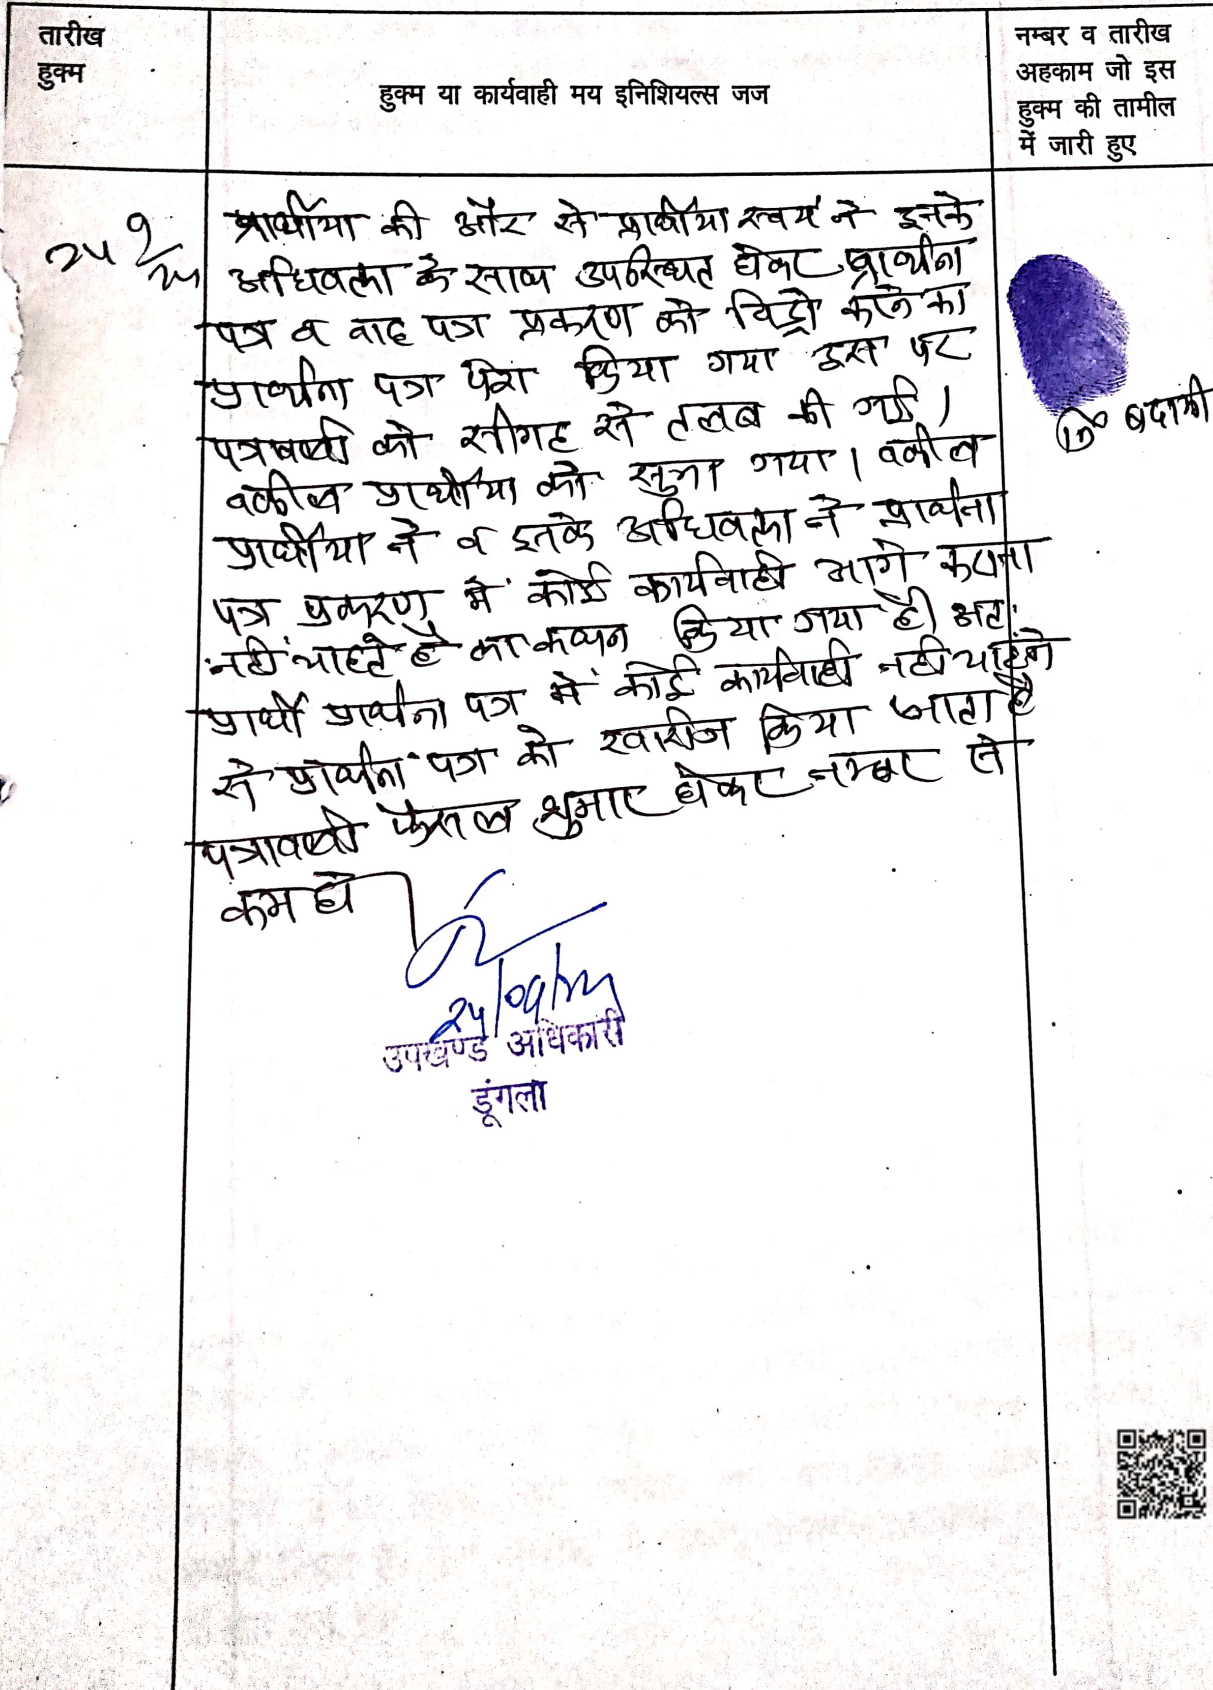 तारीख
हुक्म
हुक्म या कार्यवाही मय इनिशियल्स जज
नम्बर व तारीख
अहकाम जो इस
हुक्म की तामील
में जारी हुए
प्रार्थीया की और से प्रार्थीया स्वयं ने इनके
अधिवक्ता के साथ उपस्थित होकर प्रार्थना
पत्र व वाद पत्र प्रकरण को विड्रो करने का
प्रार्थना पत्र पेश किया गया इस पर
पत्रावली को सीगह से तलब की गई।
वकील प्रार्थीया को सुना गया। वकील
प्रार्थीया ने व इनके अधिवक्ता ने प्रार्थना
पत्र प्रकरण में कोई कार्यवाही आगे करना
नहीं चाहते है का कथन किया गया है। अतः
प्रार्थी प्रार्थना पत्र में कोई कार्यवाही नहीं चाहने
से प्रार्थना पत्र को खारीज किया जाता है
पत्रावली फैसल शुमार होकर नम्बर से
कम हो
24/09/24
उपखण्ड अधिकारी
डूंगला